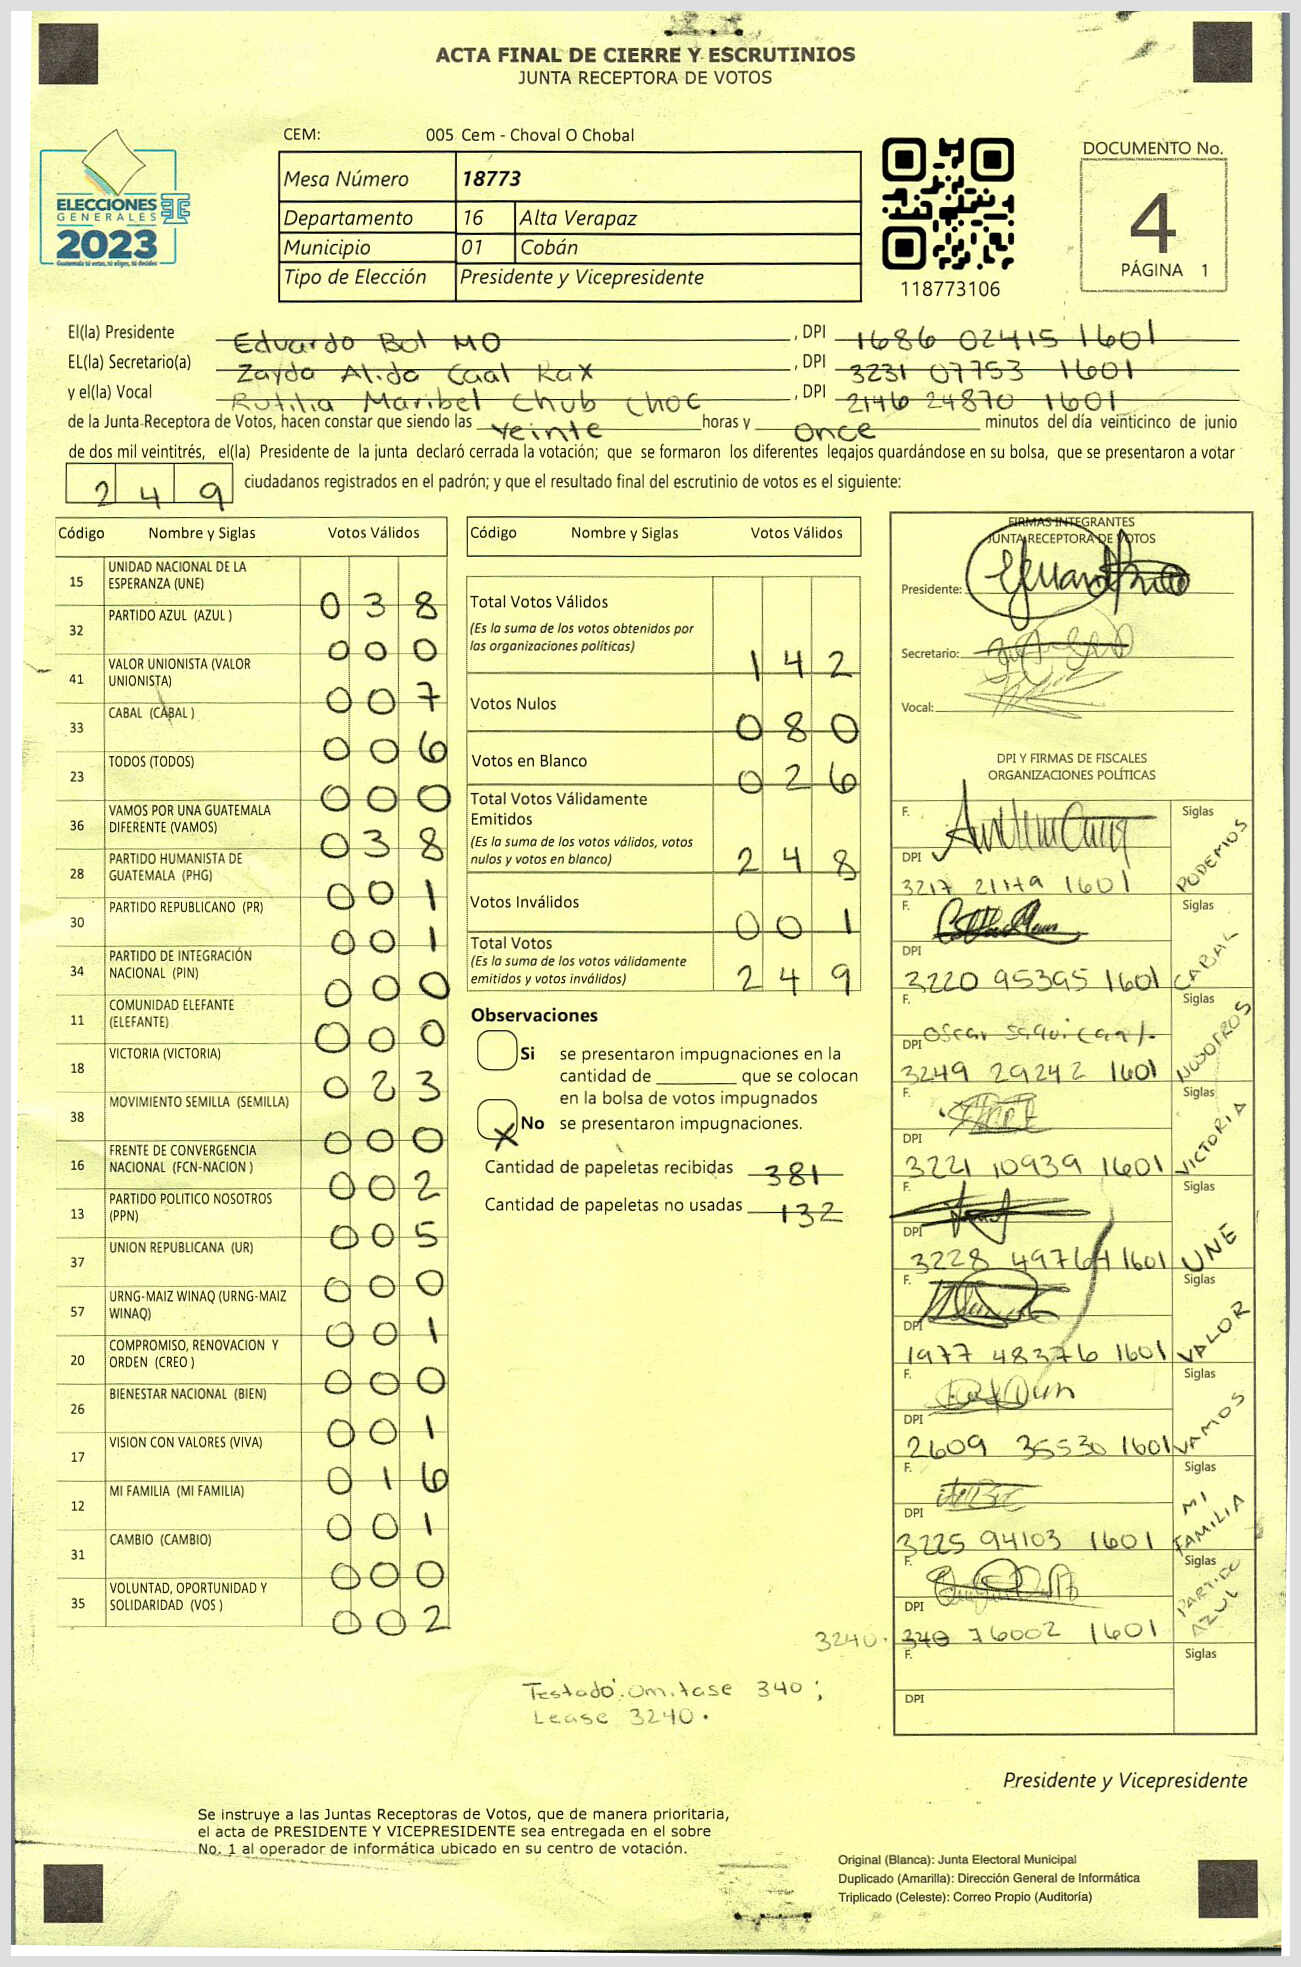 ACTA FINAL DE CIERRE Y ESCRUTINIOS
JUNTA RECEPTORA DE VOTOS
CEM: 005 Cem - Choval O Chobal
ELECCIONES
GENERALES
2023
Guatemala tú votas, tú eliges, tú decides
Mesa Número 18773
Departamento 16 Alta Verapaz
Municipio 01 Cobán
Tipo de Elección Presidente y Vicepresidente
118773106
DOCUMENTO No.
4
PÁGINA 1
El(la) Presidente Eduardo Bol MO , DPI 1686 02415 1601
EL(la) Secretario(a) Zayda Alida Caal Kax , DPI 3231 07753 1601
y el(la) Vocal Rutilia Maribel Chub Choc , DPI 2146 24870 1601
de la Junta Receptora de Votos, hacen constar que siendo las veinte horas y once minutos del día veinticinco de junio
de dos mil veintitrés, el(la) Presidente de la junta declaró cerrada la votación; que se formaron los diferentes legajos guardándose en su bolsa, que se presentaron a votar
249 ciudadanos registrados en el padrón; y que el resultado final del escrutinio de votos es el siguiente:
Código Nombre y Siglas Votos Válidos
15 UNIDAD NACIONAL DE LA
ESPERANZA (UNE) 038
32 PARTIDO AZUL (AZUL ) 000
41 VALOR UNIONISTA (VALOR
UNIONISTA) 007
33 CABAL (CABAL ) 006
23 TODOS (TODOS) 000
36 VAMOS POR UNA GUATEMALA
DIFERENTE (VAMOS) 038
28 PARTIDO HUMANISTA DE
GUATEMALA (PHG) 001
30 PARTIDO REPUBLICANO (PR) 001
34 PARTIDO DE INTEGRACIÓN
NACIONAL (PIN) 000
11 COMUNIDAD ELEFANTE
(ELEFANTE) 000
18 VICTORIA (VICTORIA) 023
38 MOVIMIENTO SEMILLA (SEMILLA) 000
16 FRENTE DE CONVERGENCIA
NACIONAL (FCN-NACION ) 002
13 PARTIDO POLITICO NOSOTROS
(PPN) 005
37 UNION REPUBLICANA (UR) 000
57 URNG-MAIZ WINAQ (URNG-MAIZ
WINAQ) 001
20 COMPROMISO, RENOVACION Y
ORDEN (CREO ) 000
26 BIENESTAR NACIONAL (BIEN) 001
17 VISION CON VALORES (VIVA) 016
12 MI FAMILIA (MI FAMILIA) 001
31 CAMBIO (CAMBIO) 000
35 VOLUNTAD, OPORTUNIDAD Y
SOLIDARIDAD (VOS ) 002
Código Nombre y Siglas Votos Válidos
Total Votos Válidos
(Es la suma de los votos obtenidos por
las organizaciones políticas) 142
Votos Nulos 080
Votos en Blanco 026
Total Votos Válidamente
Emitidos
(Es la suma de los votos válidos, votos
nulos y votos en blanco) 248
Votos Inválidos 001
Total Votos
(Es la suma de los votos válidamente
emitidos y votos inválidos) 249
Observaciones
Si se presentaron impugnaciones en la
cantidad de ________ que se colocan
en la bolsa de votos impugnados
X No se presentaron impugnaciones.
Cantidad de papeletas recibidas 381
Cantidad de papeletas no usadas 132
FIRMAS INTEGRANTES
JUNTA RECEPTORA DE VOTOS
Presidente:
Secretario:
Vocal:
DPI Y FIRMAS DE FISCALES
ORGANIZACIONES POLÍTICAS
F. Siglas PODEMOS
DPI 1601
F. Siglas CABAL
DPI 3220 95395 1601
F. Oscar Siglas NOSOTROS
DPI 3249 29242 1601
F. Siglas VICTORIA
DPI 3221 10939 1601
F. Siglas UNE
DPI 3228 49764 1601
F. Siglas VALOR
DPI 1977 48376 1601
F. Siglas VAMOS
DPI 2609 35530 1601
F. Siglas MI FAMILIA
DPI 3225 94103 1601
F. Siglas PARTIDO AZUL
DPI
3240. 340 76002 1601
F. Siglas
DPI
Testado: Omitase 340;
Lease 3240.
Presidente y Vicepresidente
Se instruye a las Juntas Receptoras de Votos, que de manera prioritaria,
el acta de PRESIDENTE Y VICEPRESIDENTE sea entregada en el sobre
No. 1 al operador de informática ubicado en su centro de votación.
Original (Blanca): Junta Electoral Municipal
Duplicado (Amarilla): Dirección General de Informática
Triplicado (Celeste): Correo Propio (Auditoría)